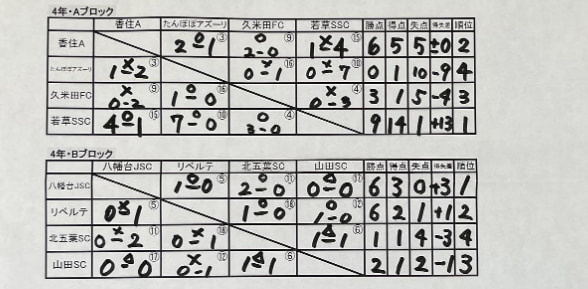 4年・Aブロック
香住A たんぽぽアズーリ 久米田FC 若草SSC 勝点 得点 失点 得失差 順位
香住A 2 ○ 1 ③ ○ 2-0 ⑨ 1 × 4 ⑮ 6 5 5 ±0 2
たんぽぽアズーリ 1 × 2 ③ × 0-1 ⑯ × 0-7 ⑩ 0 1 10 -9 4
久米田FC × 0-2 ⑨ ○ 1-0 ⑯ × 0-3 ④ 3 1 5 -4 3
若草SSC ○ 4-1 ⑮ ○ 7-0 ⑩ ○ 3-0 ④ 9 14 1 +13 1
4年・Bブロック
八幡台JSC リベルテ 北五葉SC 山田SC 勝点 得点 失点 得失差 順位
八幡台JSC ○ 1-0 ⑤ ○ 2-0 ⑪ 0-0 ⑰ 6 3 0 +3 1
リベルテ × 0-1 ⑤ ○ 1-0 ⑱ ○ 1-0 ⑫ 6 2 1 +1 2
北五葉SC × 0-2 ⑪ × 0-1 ⑱ △ 1-1 ⑥ 1 1 4 -3 4
山田SC △ 0-0 ⑰ × 0-1 ⑫ △ 1-1 ⑥ 2 1 2 -1 3